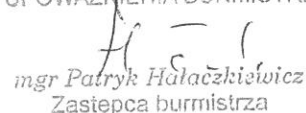 mgr Patryk Hałaczkiewicz
Zastępca burmistrza